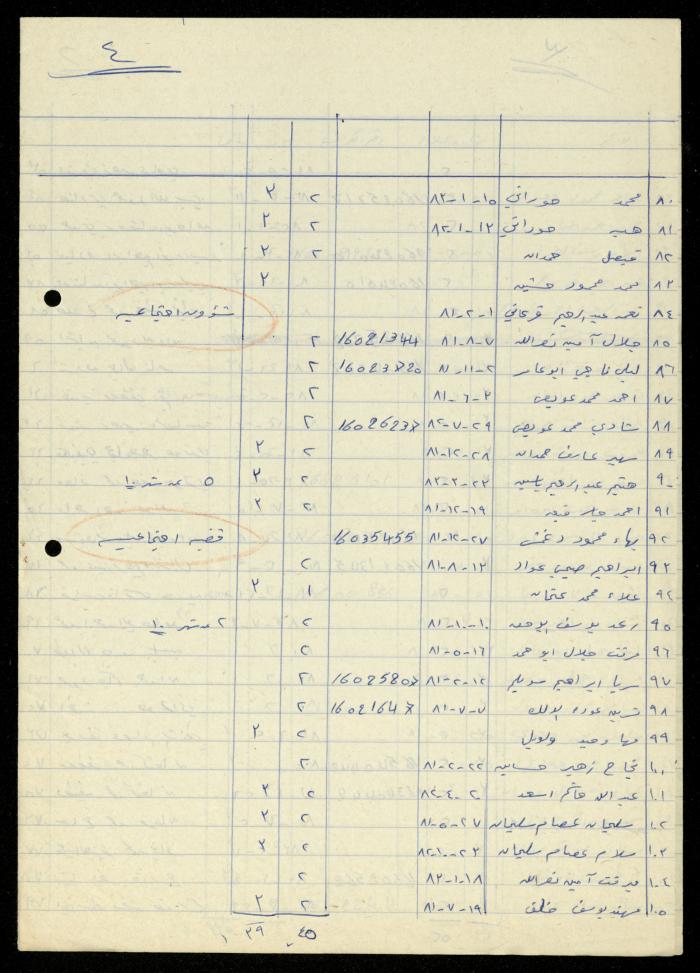 ٤
٨٠ محمد حوراني ١٥-١-٨٢ ٢ ٢
٨١ هبه حوراني ١٢-١-٨٢ ٢ ٢
٨٢ فيصل حمدان ٢ ٣
٨٣ محمد محمود حسين ٢
٨٤ نعمه عبدالرحيم قرعاني ١-٢-٨١ شؤون اجتماعيه
٨٥ جلال أمين نصرالله ٧-٨-٨١ 16021344 ٢
٨٦ ليلى ناجي ابوعمار ٢-١١-٨١ ٢
٨٧ احمد محمد عويض ٢-٦-٨١ ٢
٨٨ شادي محمد عويض ٢٩-٧-٨٢ ٢
٨٩ سهير عارف حمدان ٢٨-١٢-٨١ ٢ ٢
٩٠ هيثم عبدالرحيم ياسين ٢ ٢ ٥ عن شهر ١٠
٩١ احمد ١٩-١٢-٨١ ٢ ٢
٩٢ بهاء محمود دغمش ٢٧-١٢-٨١ 16035455 قضيه اجتماعيه
٩٣ ابراهيم صبحي عواد ١٢-٨-٨١ ٢
٩٤ علاء محمد عثمان ١ ٢
٩٥ رعد يوسف ١٠-١٠-٨١ ٢ ٢ عن شهر ١٠
٩٦ مرفت جلال ابو حمد ١٦-٥-٨١ ٢
٩٧ ربا ابراهيم سويلم ١٢-٢-٨١ ٢
٩٨ نسرين عوده ٧-٧-٨١ ٢
٩٩ مهاء وحيد ٢ ٢
١٠٠ نجاح زهير حسانين ٢٢-٢-٨١ ٢
١٠١ عبدالله قاسم اسعد ٢-٤-٨٢ ٢ ٢
١٠٢ سليمان عصام سليمان ٢٧-٥-٨١ ٢ ٢
١٠٣ سلام عصام سليمان ٢ ٢
١٠٤ ميرفت أمين نصرالله ١٨-١-٨٢ ٢
١٠٥ مهند يوسف خلف ١٩-٧-٨١ ٢ ٢
٤٥ ٢٩